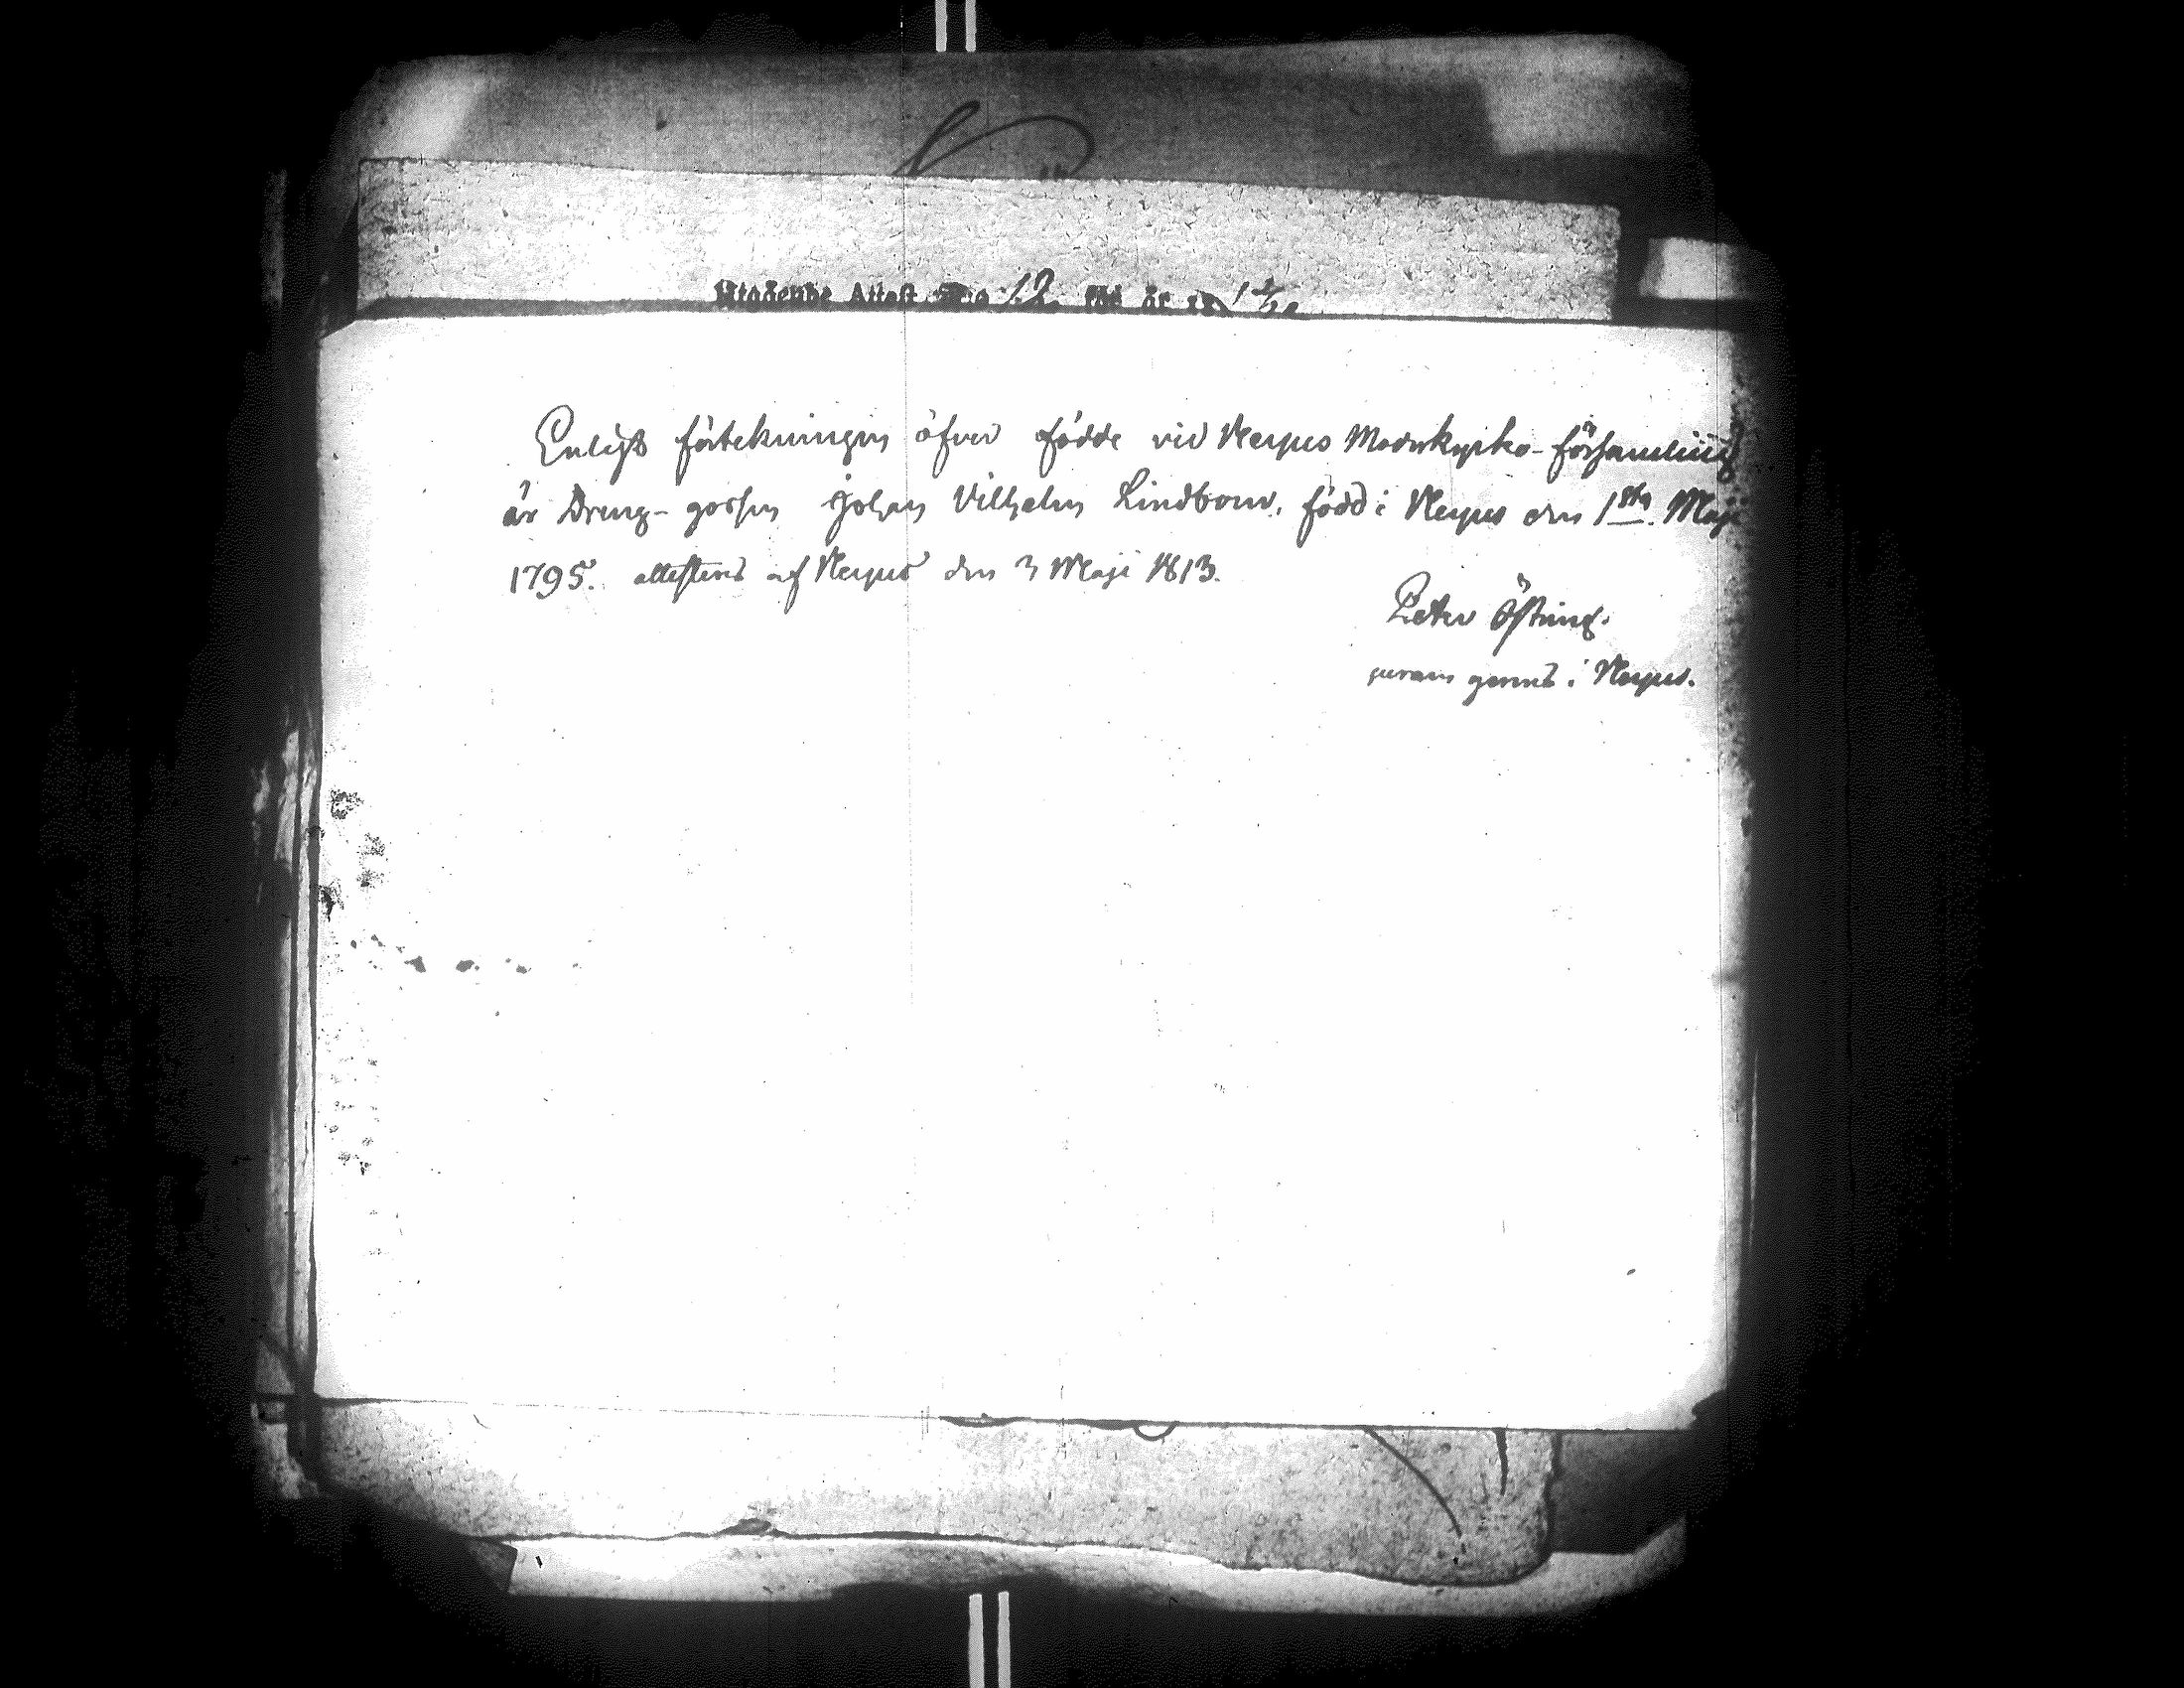 Utgående Attest No 12 för år 18
Enligt förtekningen öfver födde vid Nerpes Moderkyrko-församling
är Dreng-gossen Johan Vilhelm Lindbom, född i Nerpes den 1sta Maji
1795. attesteras af Nerpes den 3 Maji 1813.
Peter Östring.
sacram gerens i Nerpes.